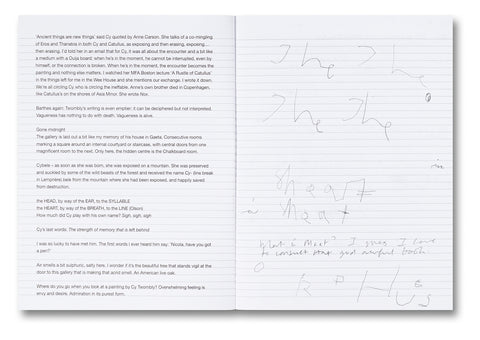 'Ancient things are new things' said Cy quoted by Anne Carson. She talks of a co-mingling
of Eros and Thanatos in both Cy and Catullus, as exposing and then erasing, exposing….
then erasing. I'd told her in an email that for Cy, it was all about the encounter and a bit like
a medium with a Ouija board; when he's in the moment, he cannot be interrupted, even by
himself, or the connection is broken. When he's in the moment, the encounter becomes the
painting and nothing else matters. I watched her MFA Boston lecture 'A Rustle of Catullus'
in the things left for me in the Wee House and she mentions our exchange. I wrote it down.
We're all circling Cy who is circling the ineffable. Anne's own brother died in Copenhagen,
like Catullus's on the shores of Asia Minor. She wrote Nox.
Barthes again. Twombly's writing is even emptier: it can be deciphered but not interpreted.
Vagueness has nothing to do with death. Vagueness is alive.
Gone midnight
The gallery is laid out a bit like my memory of his house in Gaeta. Consecutive rooms
marking a square around an internal courtyard or staircase, with central doors from one
magnificent room to the next. Only here, the hidden centre is the Chalkboard room.
Cybele - as soon as she was born, she was exposed on a mountain. She was preserved
and suckled by some of the wild beasts of the forest and received the name Cy- (line break
in Lemprière) bele from the mountain where she had been exposed, and happily saved
from destruction.
the HEAD, by way of the EAR, to the SYLLABLE
the HEART, by way of the BREATH, to the LINE (Olson)
How much did Cy play with his own name? Sigh, sigh, sigh
Cy's last words. The strength of memory that is left behind
I was so lucky to have met him. The first words I ever heard him say: 'Nicola, have you got
a pen?'
Air smells a bit sulphuric, salty here. I wonder if it's the beautiful tree that stands vigil at the
door to this gallery that is making that acrid smell. An American live oak.
Where do you go when you look at a painting by Cy Twombly? Overwhelming feeling is
envy and desire. Admiration in its purest form.
The The
The The
in
heat
What is Meat? I guess I have
to consult that god awful